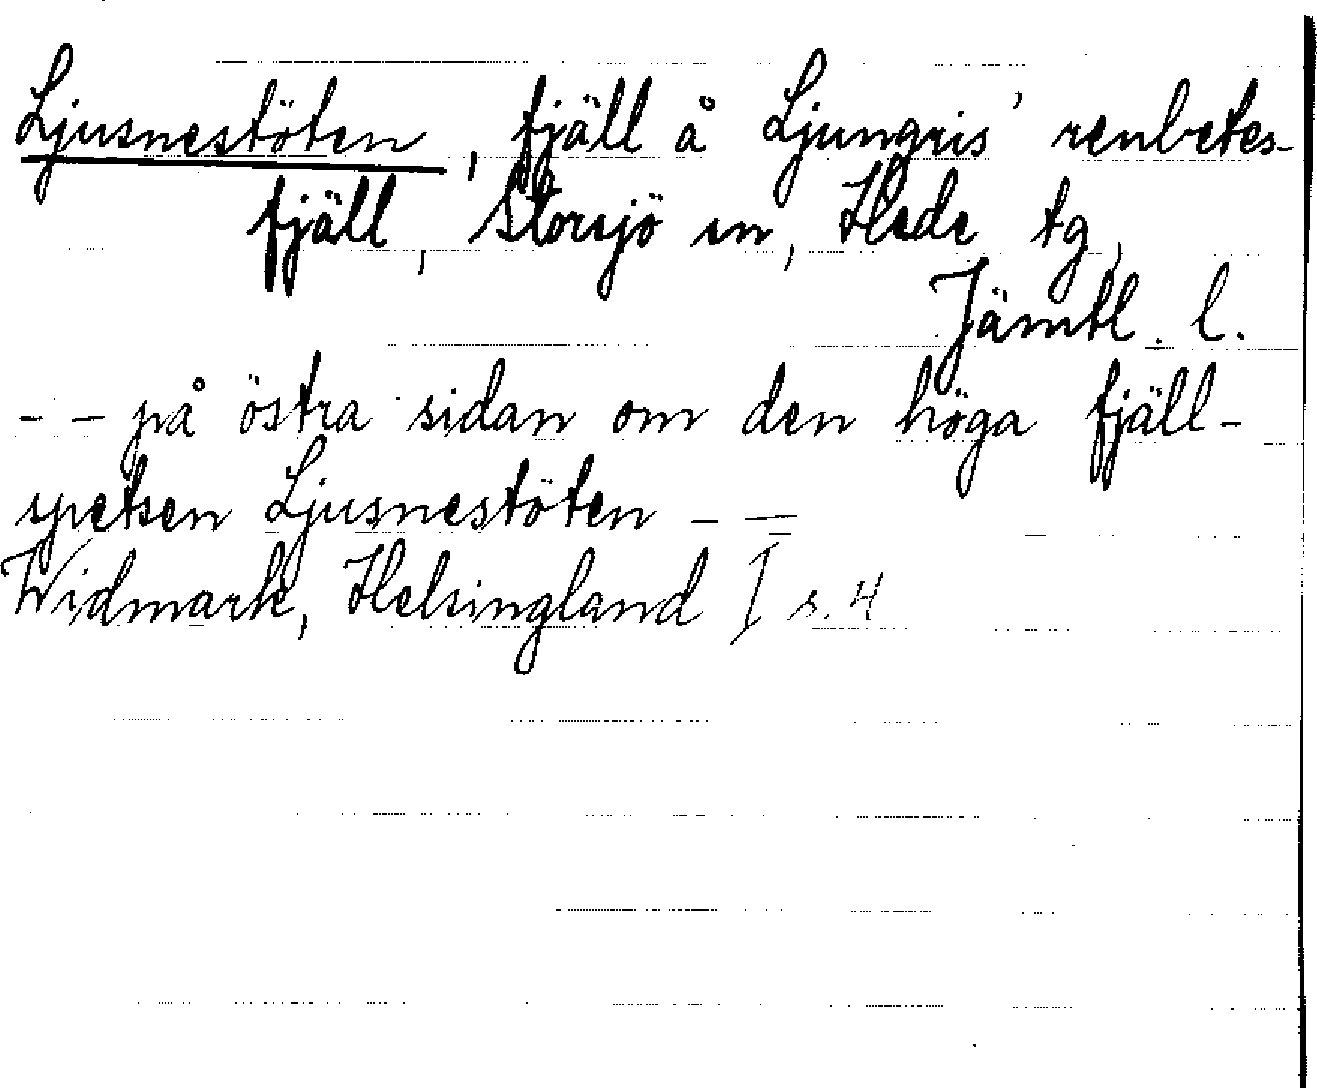 Ljusnestöten, fjäll å Ljungris' renbetes-
fjäll, Storsjö sn, Hede tg,
Jämtl. l.
- - på östra sidan om den höga fjäll-
spetsen Ljusnestöten - -
Widmark, Helsingland I s. 4